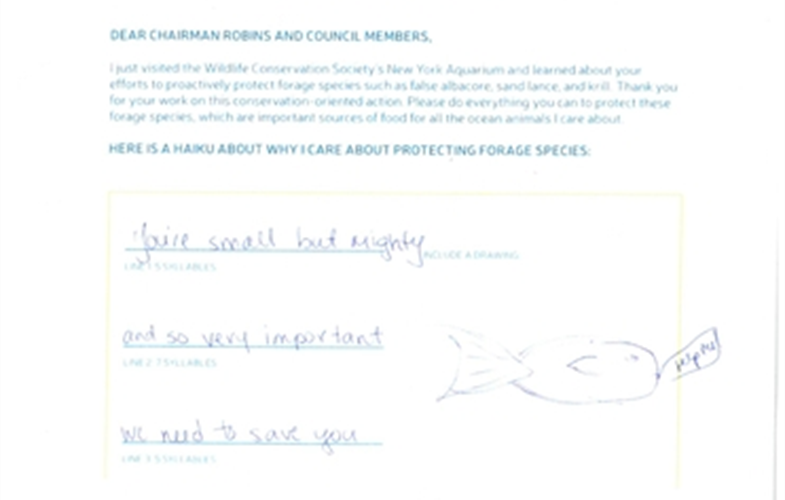 DEAR CHAIRMAN ROBINS AND COUNCIL MEMBERS,
I just visited the Wildlife Conservation Society's New York Aquarium and learned about your
efforts to proactively protect forage species such as false albacore, sand lance, and krill. Thank you
for your work on this conservation-oriented action. Please do everything you can to protect these
forage species, which are important sources of food for all the ocean animals I care about.
HERE IS A HAIKU ABOUT WHY I CARE ABOUT PROTECTING FORAGE SPECIES:
You're small but mighty
INCLUDE A DRAWING
LINE 1 5 SYLLABLES
and so very important
LINE 2 7 SYLLABLES
we need to save you
LINE 3 5 SYLLABLES